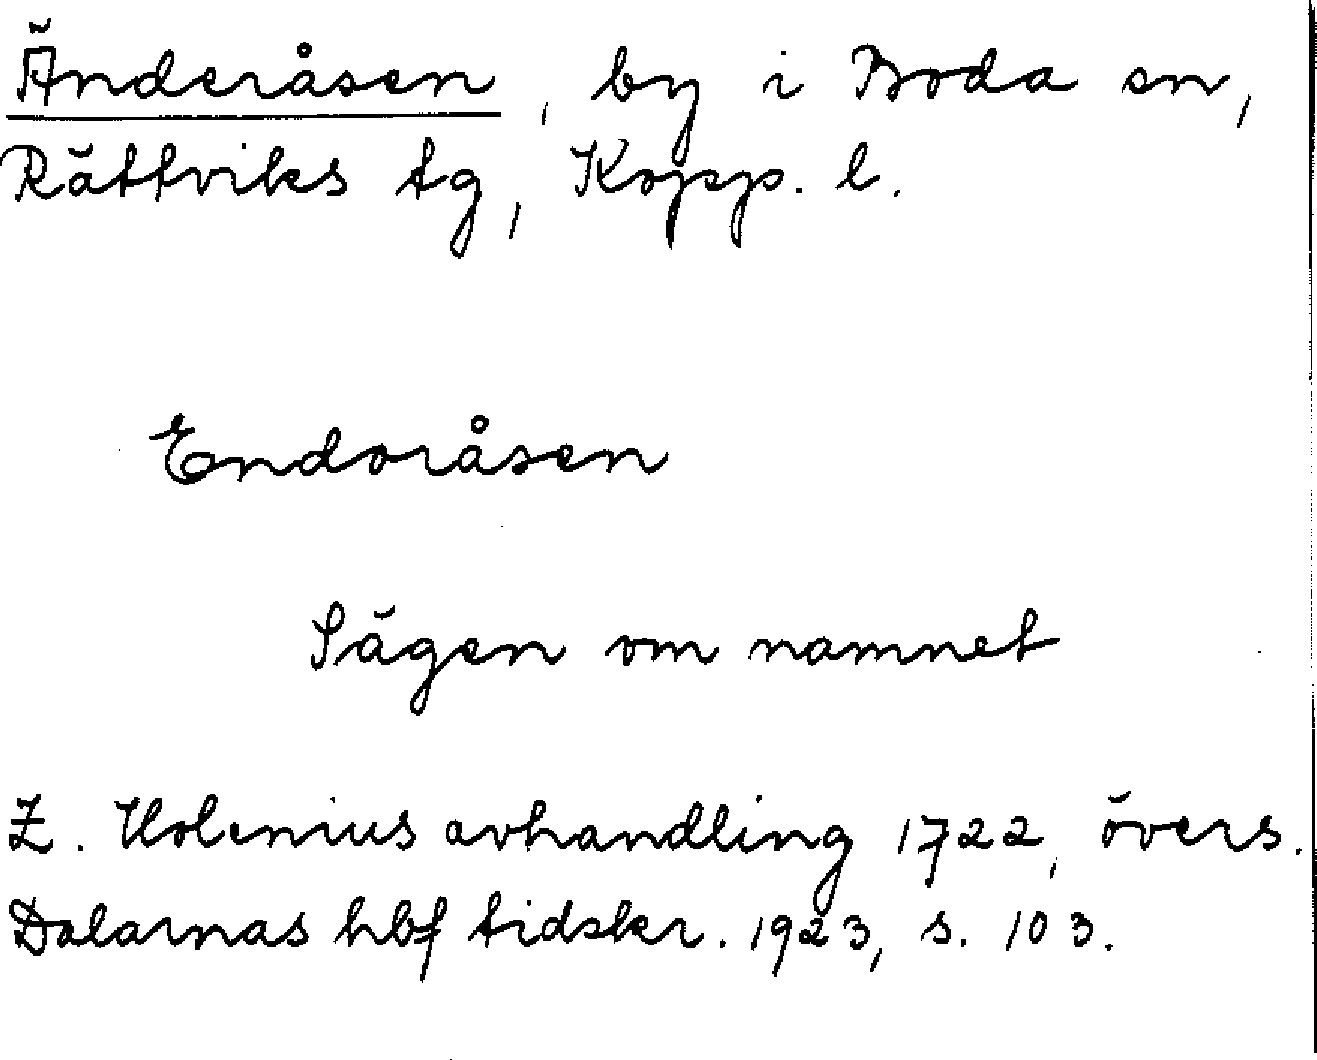 Änderåsen, by i Boda sn,
Rättviks tg, Kopp. l.
Endoråsen
Sägen om namnet
Z. Holenius avhandling 1722, övers.
Dalarnas hbf tidskr. 1923, s. 103.